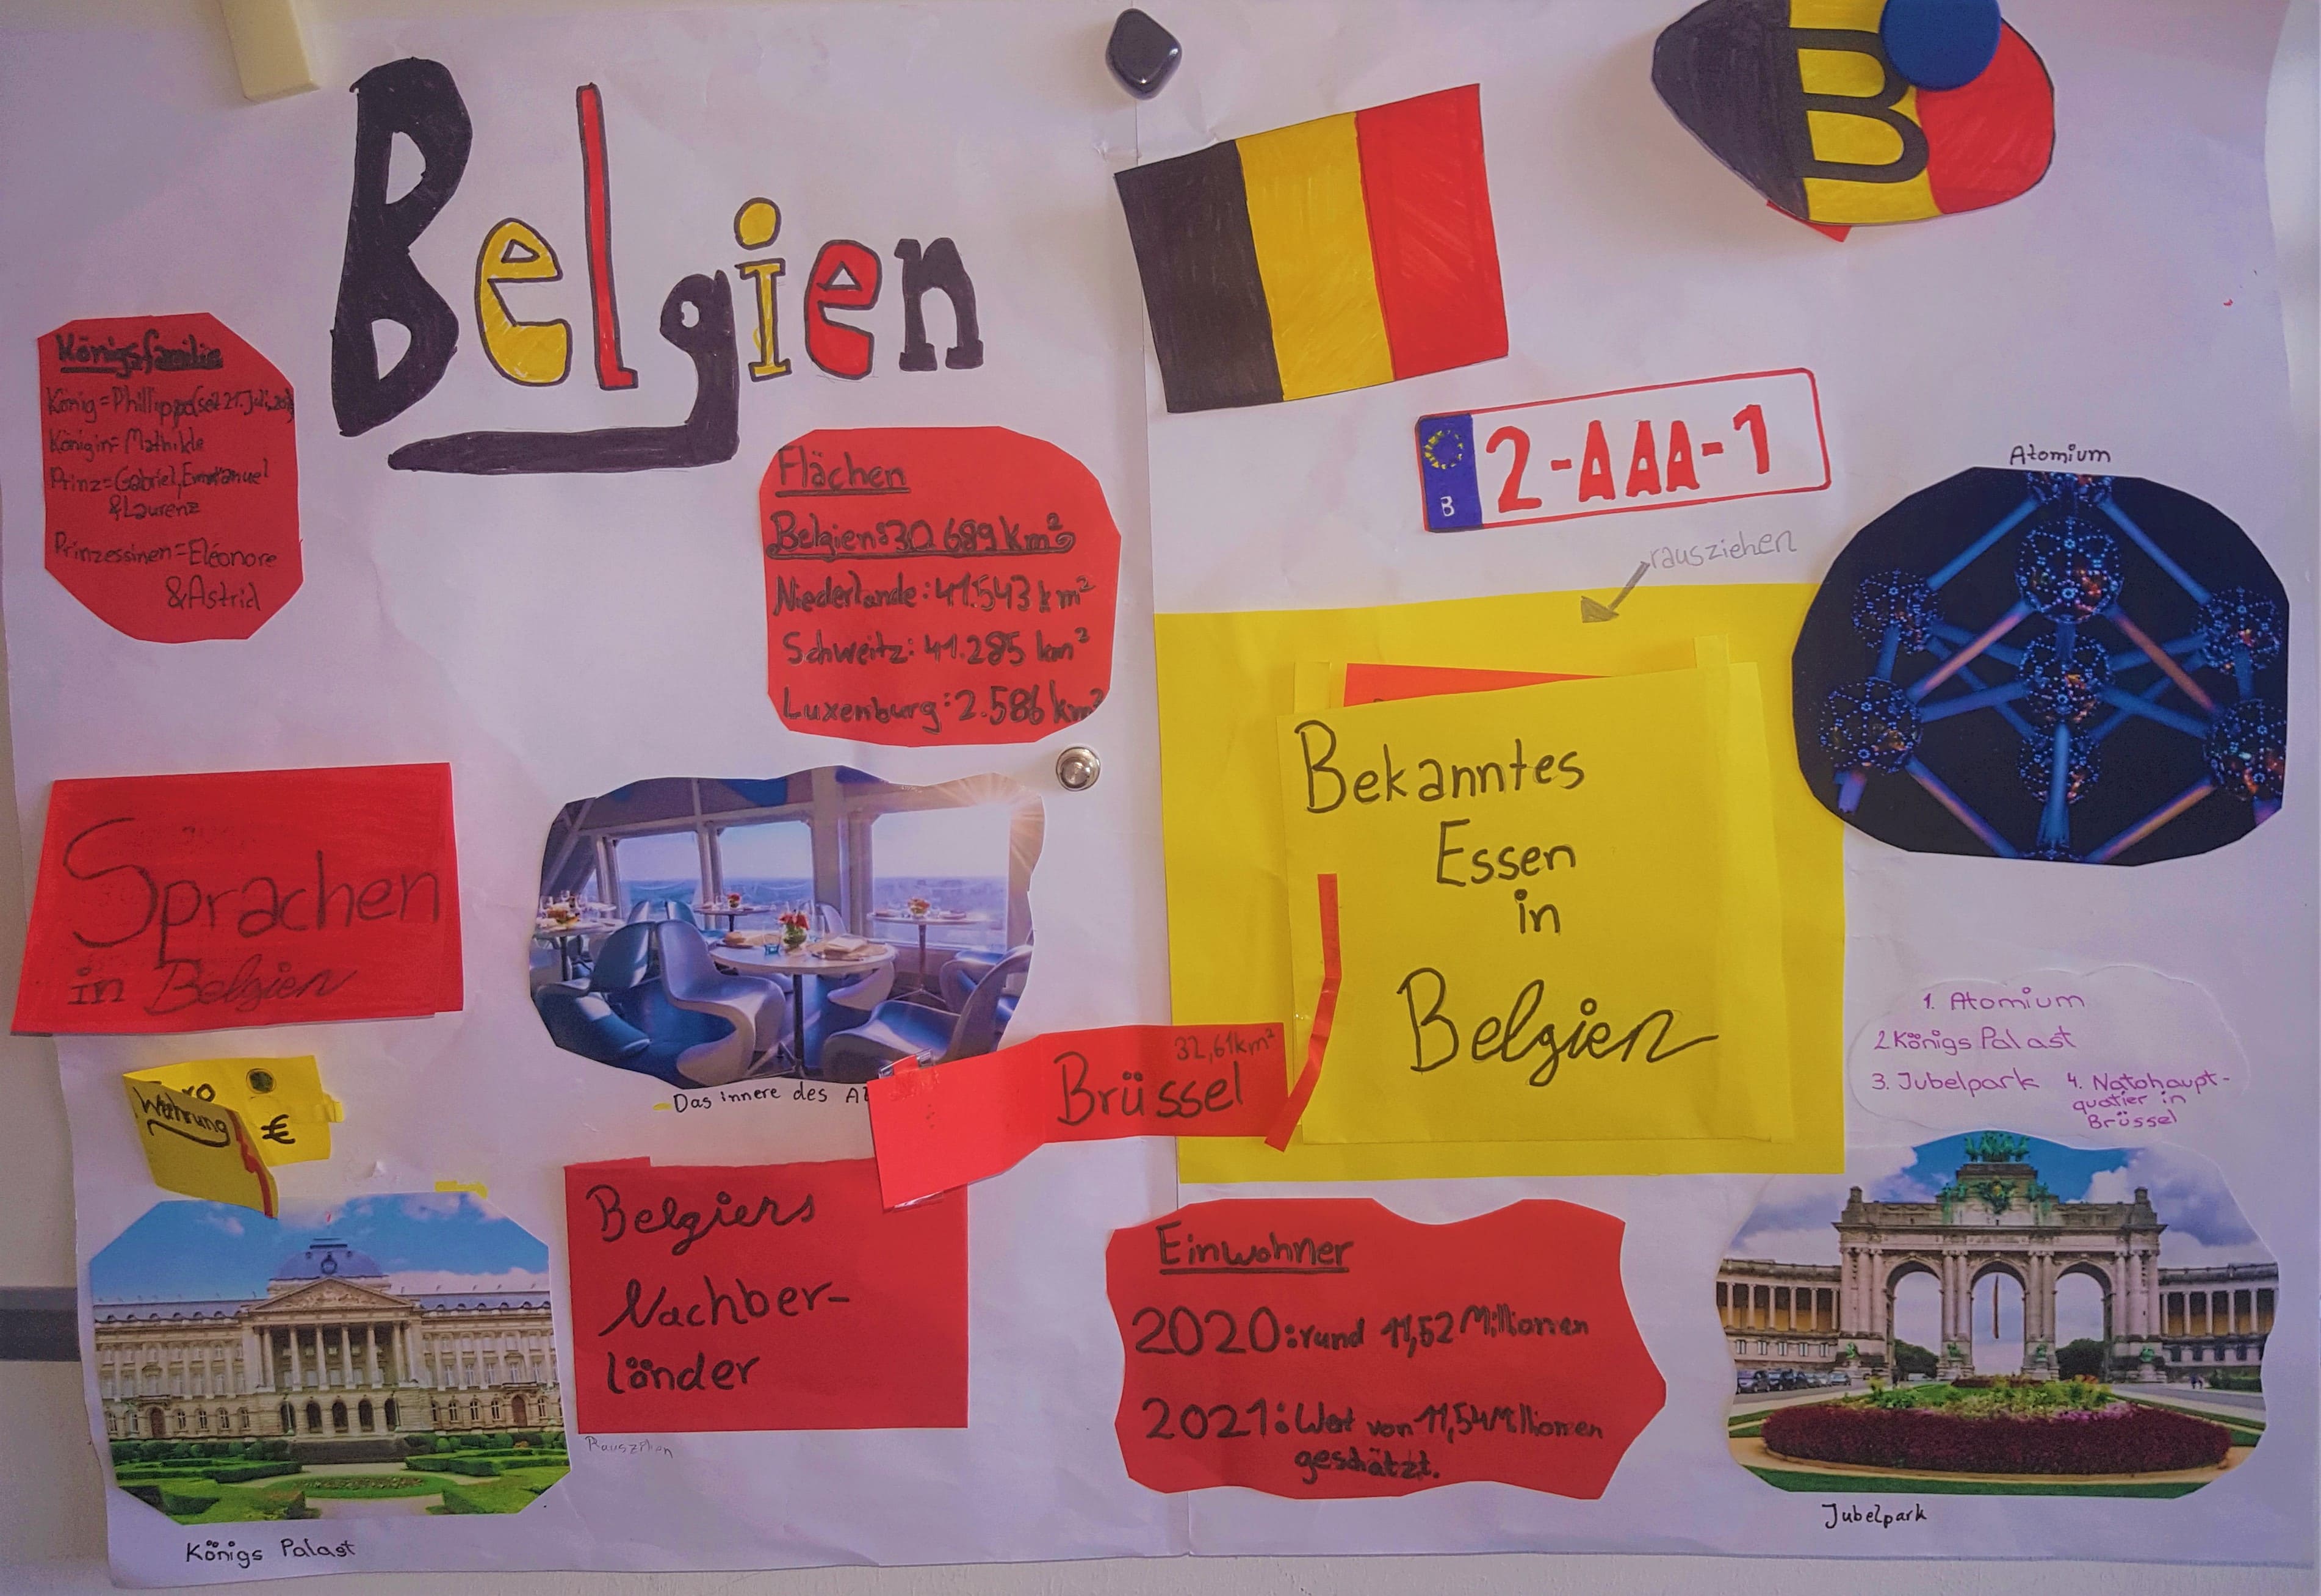 Belgien
B
Königsfamilie
König=Phillippp(seit 21. Juli,
Königin= Mathilde
Prinz=Gabriel, Emmanuel
&Laurenz
Prinzessinen=Eléonore
&Astrid
Flächen
Belgien:30.689km²
Niederlande:41.543km²
Schweitz:41.285 km²
Luxenburg:2.586km²
B 2-AAA-1
Atomium
rausziehen
Bekanntes
Essen
in
Belgien
Sprachen
in Belgien
Das innere des
32,61km²
Brüssel
Währung
€
1. Atomium
2 Königs Palast
3. Jubelpark 4. Natohaupt-
quatier in
Brüssel
Belgiens
Nachber-
länder
Rausziehen
Einwohner
2020:rund 11,52 Millionen
2021:Wert von 11,54Millionen
geschätzt.
Königs Palast
Jubelpark